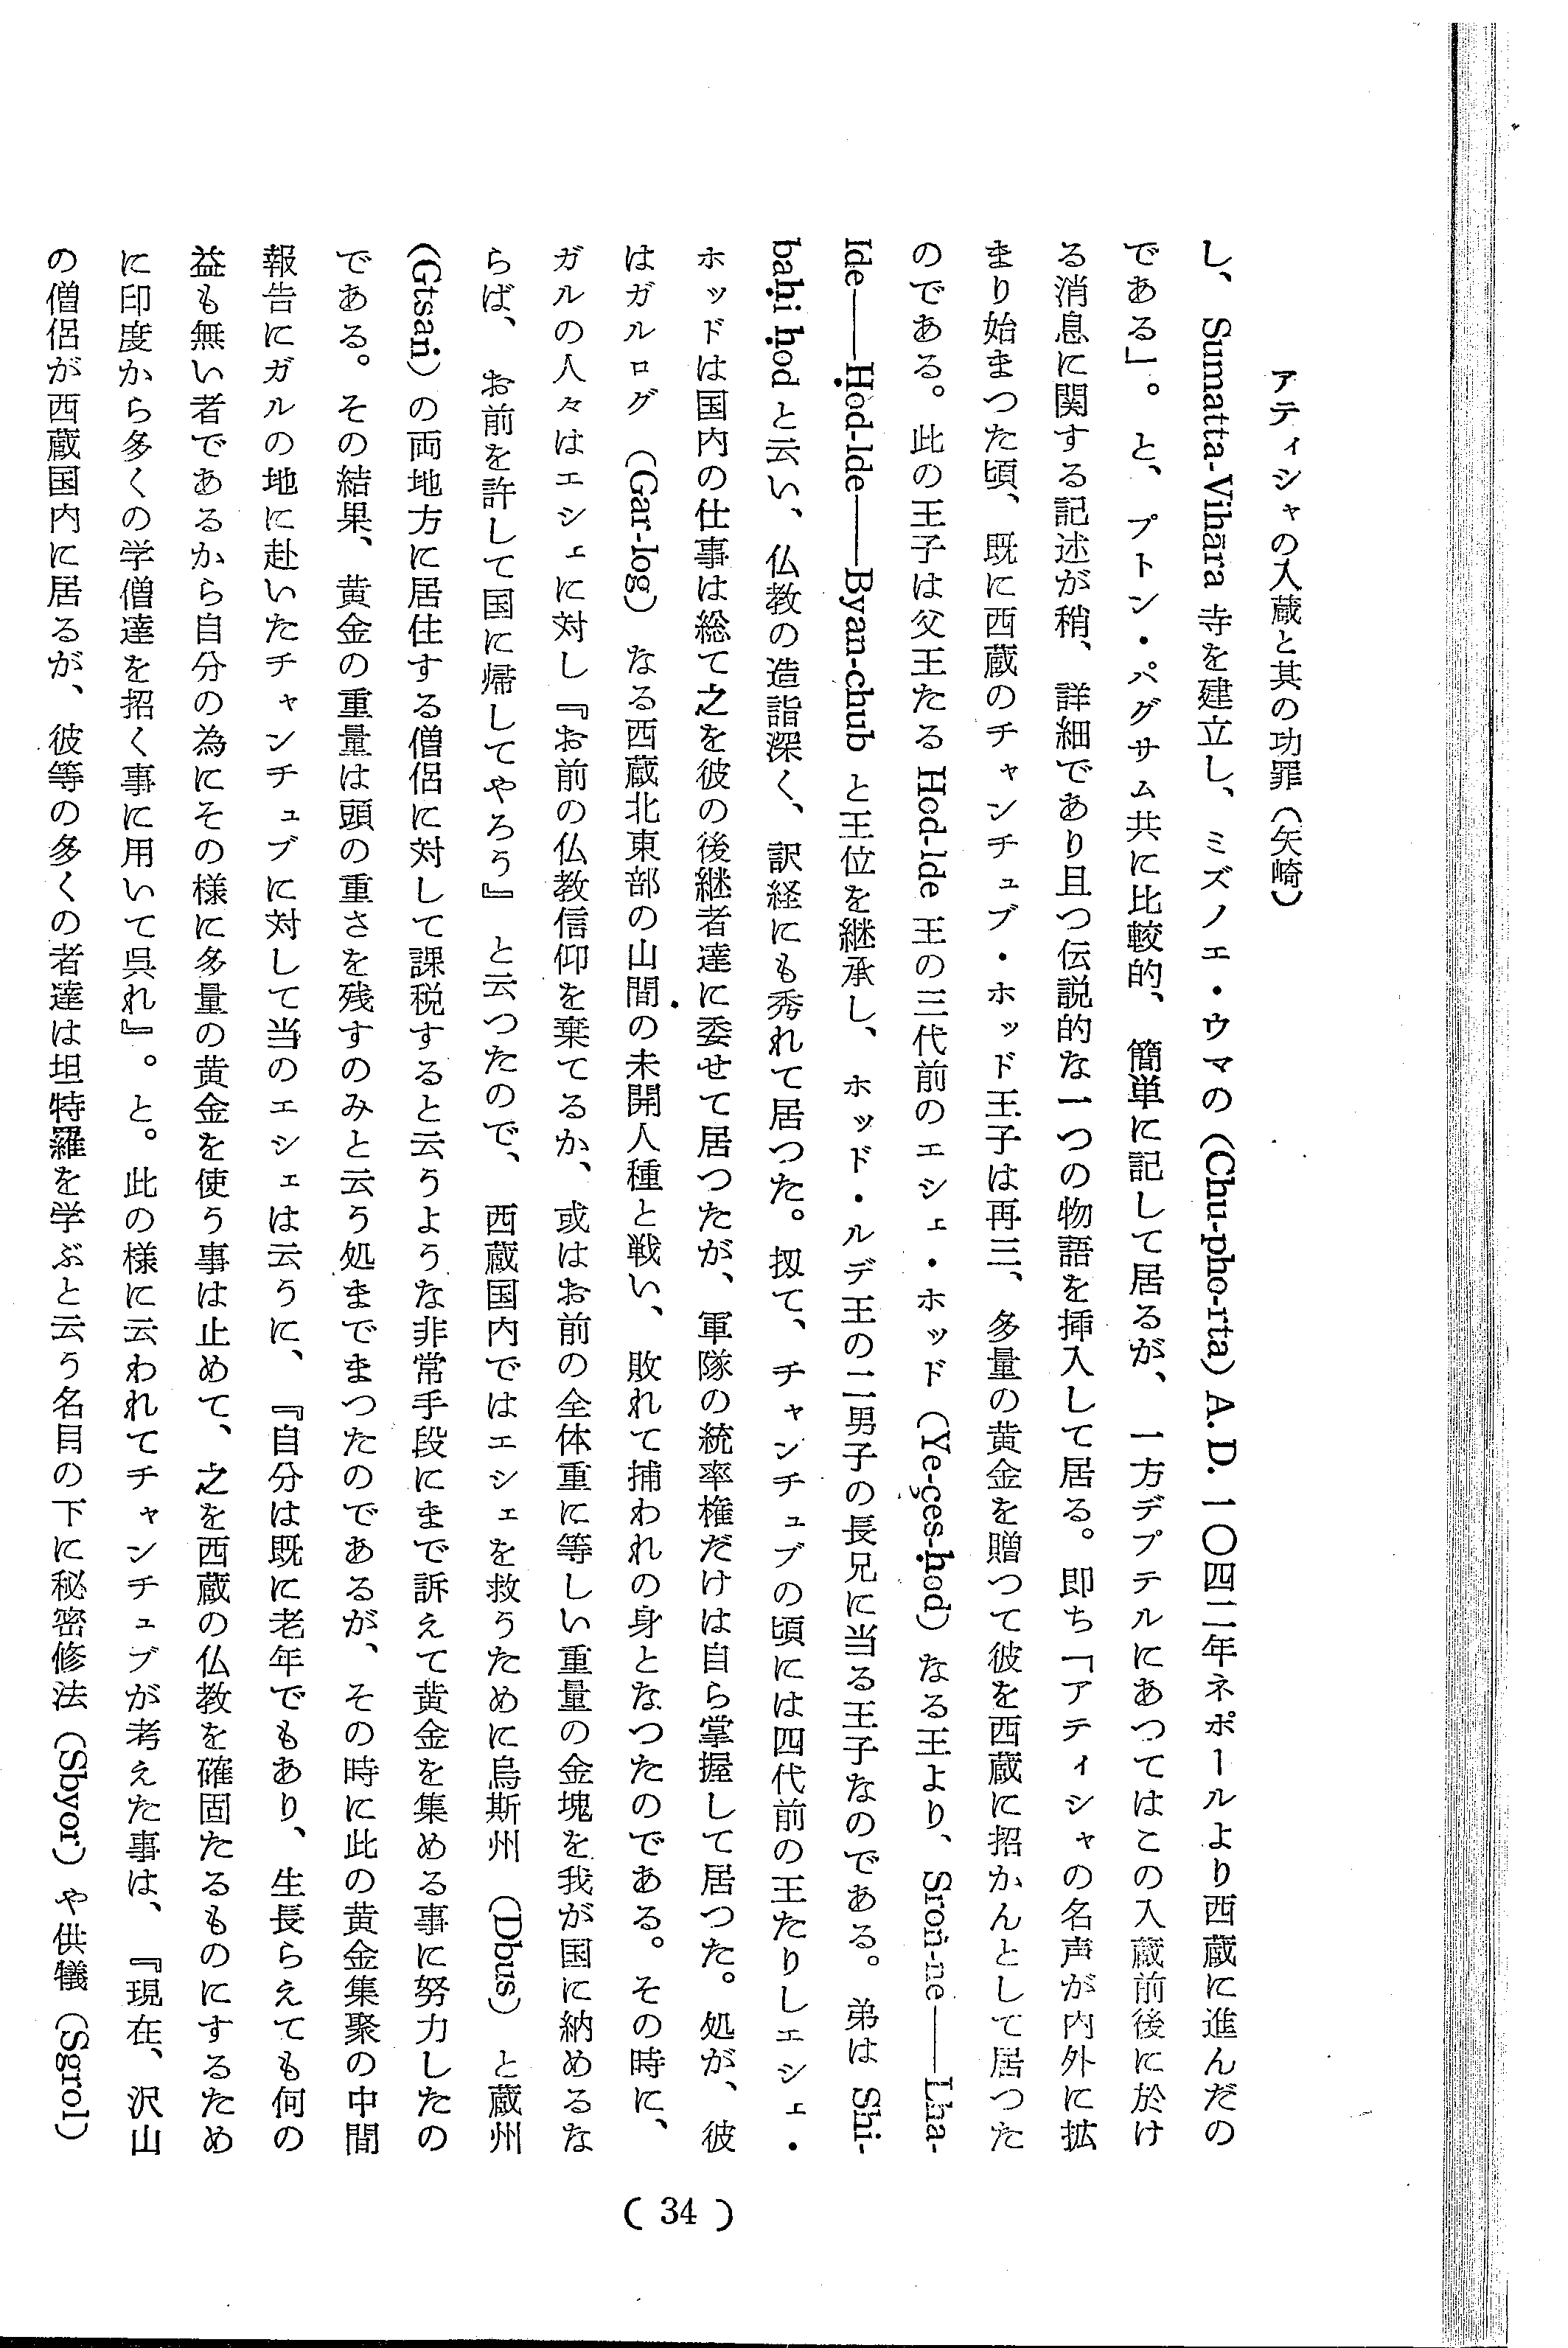 アティシャの入蔵と其の功罪（矢崎）
し、Sumatta-Vihāra 寺を建立し、ミズノエ・ウマの (Chu-pho-rta) A. D. 一〇四二年ネポールより西蔵に進んだの
である」。と、プトン・パグサム共に比較的、簡単に記して居るが、一方デプテルにあつてはこの入蔵前後に於け
る消息に関する記述が稍、詳細であり且つ伝説的な一つの物語を挿入して居る。即ち「アティシャの名声が内外に拡
まり始まつた頃、既に西蔵のチャンチュブ・ホッド王子は再三、多量の黄金を贈つて彼を西蔵に招かんとして居つた
のである。此の王子は父王たる Hod-lde 王の三代前のエシェ・ホッド（Ye-çes-ḥod）なる王より、Sroṅ-ne——Lha-
lde——Ḥod-lde——Byan-chub と王位を継承し、ホッド・ルデ王の二男子の長兄に当る王子なのである。弟は Shi-
baḥi ḥod と云い、仏教の造詣深く、訳経にも秀れて居つた。扨て、チャンチュブの頃には四代前の王たりしエシェ・
ホッドは国内の仕事は総て之を彼の後継者達に委せて居つたが、軍隊の統率権だけは自ら掌握して居つた。処が、彼
はガルログ（Gar-log）なる西蔵北東部の山間の未開人種と戦い、敗れて捕われの身となつたのである。その時に、
ガルの人々はエシェに対し『お前の仏教信仰を棄てるか、或はお前の全体重に等しい重量の金塊を我が国に納めるな
らば、お前を許して国に帰してやろう』と云つたので、西蔵国内ではエシェを救うために烏斯州（Dbus）と蔵州
（Gtsaṅ）の両地方に居住する僧侶に対して課税すると云うような非常手段にまで訴えて黄金を集める事に努力したの
である。その結果、黄金の重量は頭の重さを残すのみと云う処まで​まつたのであるが、その時に此の黄金集聚の中間
報告にガルの地に赴いたチャンチュブに対して当のエシェは云うに、『自分は既に老年でもあり、生長らえても何の
益も無い者であるから自分の為にその様に多量の黄金を使う事は止めて、之を西蔵の仏教を確固たるものにするため
に印度から多くの学僧達を招く事に用いて呉れ』。と。此の様に云われてチャンチュブが考えた事は、『現在、沢山
の僧侶が西蔵国内に居るが、彼等の多くの者達は坦特羅を学ぶと云う名目の下に秘密修法（Sbyor）や供犠（Sgrol）
( 34 )